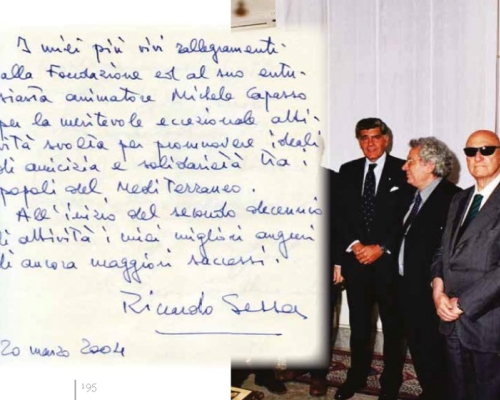 I miei più vivi rallegramenti
alla Fondazione ed al suo entu-
siasta animatore Michele Capasso
per la meritevole eccezionale atti-
vità svolta per promuovere ideali
di amicizia e solidarietà tra i
popoli del Mediterraneo.
All'inizio del secondo decennio
di attività i miei migliori auguri
di ancora maggiori successi.
Riccardo Sessa
20 marzo 2004
195